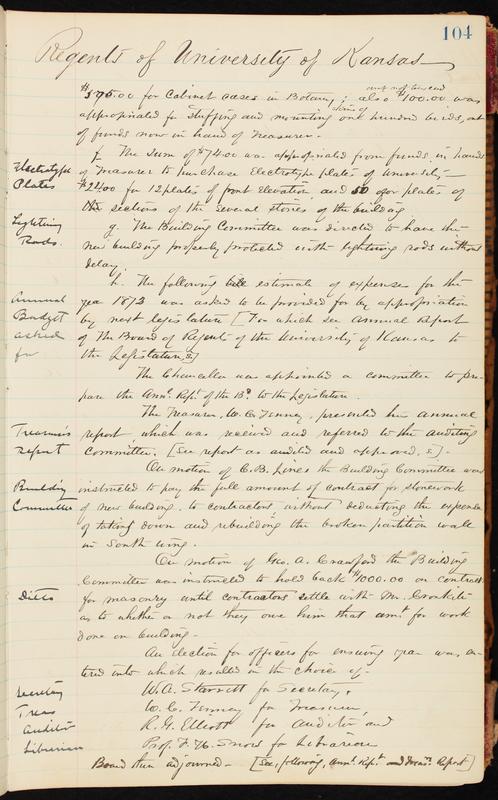 104
Regents of University of Kansas
$575.00 for Cabinet cases in Botany; also $100.00 was
appropriated for Stuffing and mounting one hundred birds, out
of funds now in hand of Treasurer.
f. The sum of $74.00 was appropriated from funds in hands
Electrotype
Plates
of Treasurer to purchase Electrotype plates of University—
$24.00 for 12 plates of front Elevation and 50 for plates of
the sections of the several stories of the building
Lightning
Rods.
g. The Building Committee was directed to have the
new building properly protected with lightning rods without
delay.
h. The following estimate of expenses for the
Annual
Budget
asked
for
year 1873 was asked to be provided for by appropriation
by next legislature [For which see Annual Report
of the Board of Regents of the University of Kansas to
the Legislature,]
The Chancellor was appointed a committee to pre-
pare the Annl. Rept. of the Bd. to the Legislature.
The Treasurer, W. C. Tenney, presented his annual
Treasurer's
report
report, which was received and referred to the auditing
committee. [See report as audited and approved,].
On motion of C. B. Lines the Building Committee was
Building
Committee
instructed to pay the full amount of contract for stonework
of new building, to contractors, without deducting the expense
of taking down and rebuilding the broken partition wall
in South wing.
On motion of Geo. A. Crawford the Building
Committee was instructed to hold back $1000.00 on contract
Ditto
for masonry until contractors settle with Mr.
as to whether or not they owe him that amt for work
done on building.
An election for officers for ensuing year was en-
tered into which resulted in the choice of—
Secretary
W. A. Starrett for Secretary,
Treas
W. C. Tenney for Treasurer,
Auditor
R. G. Elliott for Auditor and
Librarian
Prof. F. H. Snow for Librarian
Board then adjourned— [See, following, Annl. Rept. and Treas. Report]